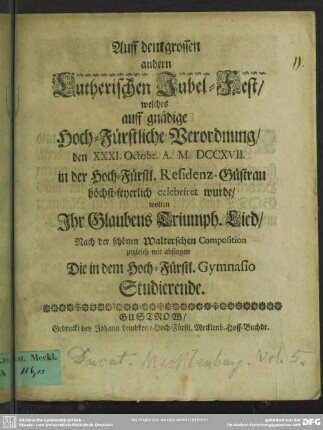 Auff dem grossen
11.
andern
Lutherischen Jubel-Fest/
welches
auff gnädige
Hoch-Fürstliche Verordnung/
den XXXI. Octobr. A. M. DCCXVII.
in der Hoch-Fürstl. Residenz-Güstrau
höchst-feyerlich celebriret wurde/
wolten
Ihr Glaubens Triumph-Lied/
Nach der schönen Walterschen Composition
zugleich mit absingen
Die in dem Hoch-Fürstl. Gymnasio
Studierende.
GUSTROW/
Gedruckt bey Johann Lembken/Hoch-Fürstl. Mecklenb. Hoff-Buchdr.
Meckl.
Ducat. Mecklenburg. Vol. 5.